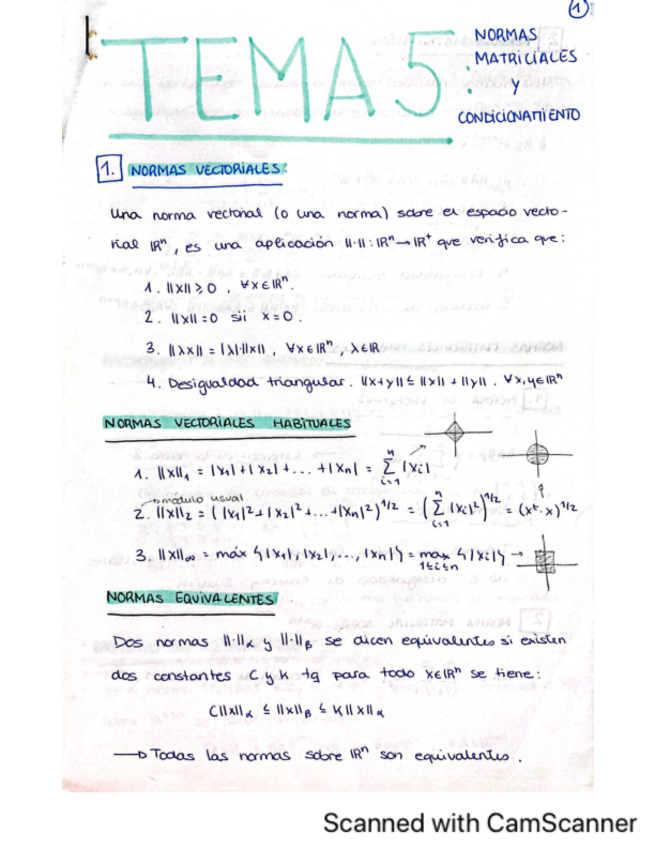 1
TEMA 5:
NORMAS
MATRICIALES
y
CONDICIONAMIENTO
1. NORMAS VECTORIALES:
Una norma vectorial (o una norma) sobre el espacio vecto-
rial ℝⁿ, es una aplicación ||·||: ℝⁿ → ℝ⁺ que verifica que:
1. ||x|| ≥ 0, ∀x∈ℝⁿ.
2. ||x|| = 0 sii x=0.
3. ||λx|| = |λ|·||x||, ∀x∈ℝⁿ, λ∈ℝ
4. Desigualdad triangular. ||x+y|| ≤ ||x|| + ||y||. ∀x,y∈ℝⁿ
NORMAS VECTORIALES HABITUALES
1. ||x||₁ = |x₁| + |x₂| + ... + |xₙ| = Σⁿᵢ₌₁ |xᵢ|
→ módulo usual
2. ||x||₂ = (|x₁|² + |x₂|² + ... + |xₙ|²)^1/2 = (Σⁿᵢ₌₁ |xᵢ|²)^1/2 = (xᵗ·x)^1/2
3. ||x||∞ = máx {|x₁|, |x₂|, ..., |xₙ|} = max 1≤i≤n {|xᵢ|} →
NORMAS EQUIVALENTES
Dos normas ||·||α y ||·||β se dicen equivalentes si existen
dos constantes C y K tq para todo x∈ℝⁿ se tiene:
C||x||α ≤ ||x||β ≤ K||x||α
→ Todas las normas sobre ℝⁿ son equivalentes.
Scanned with CamScanner